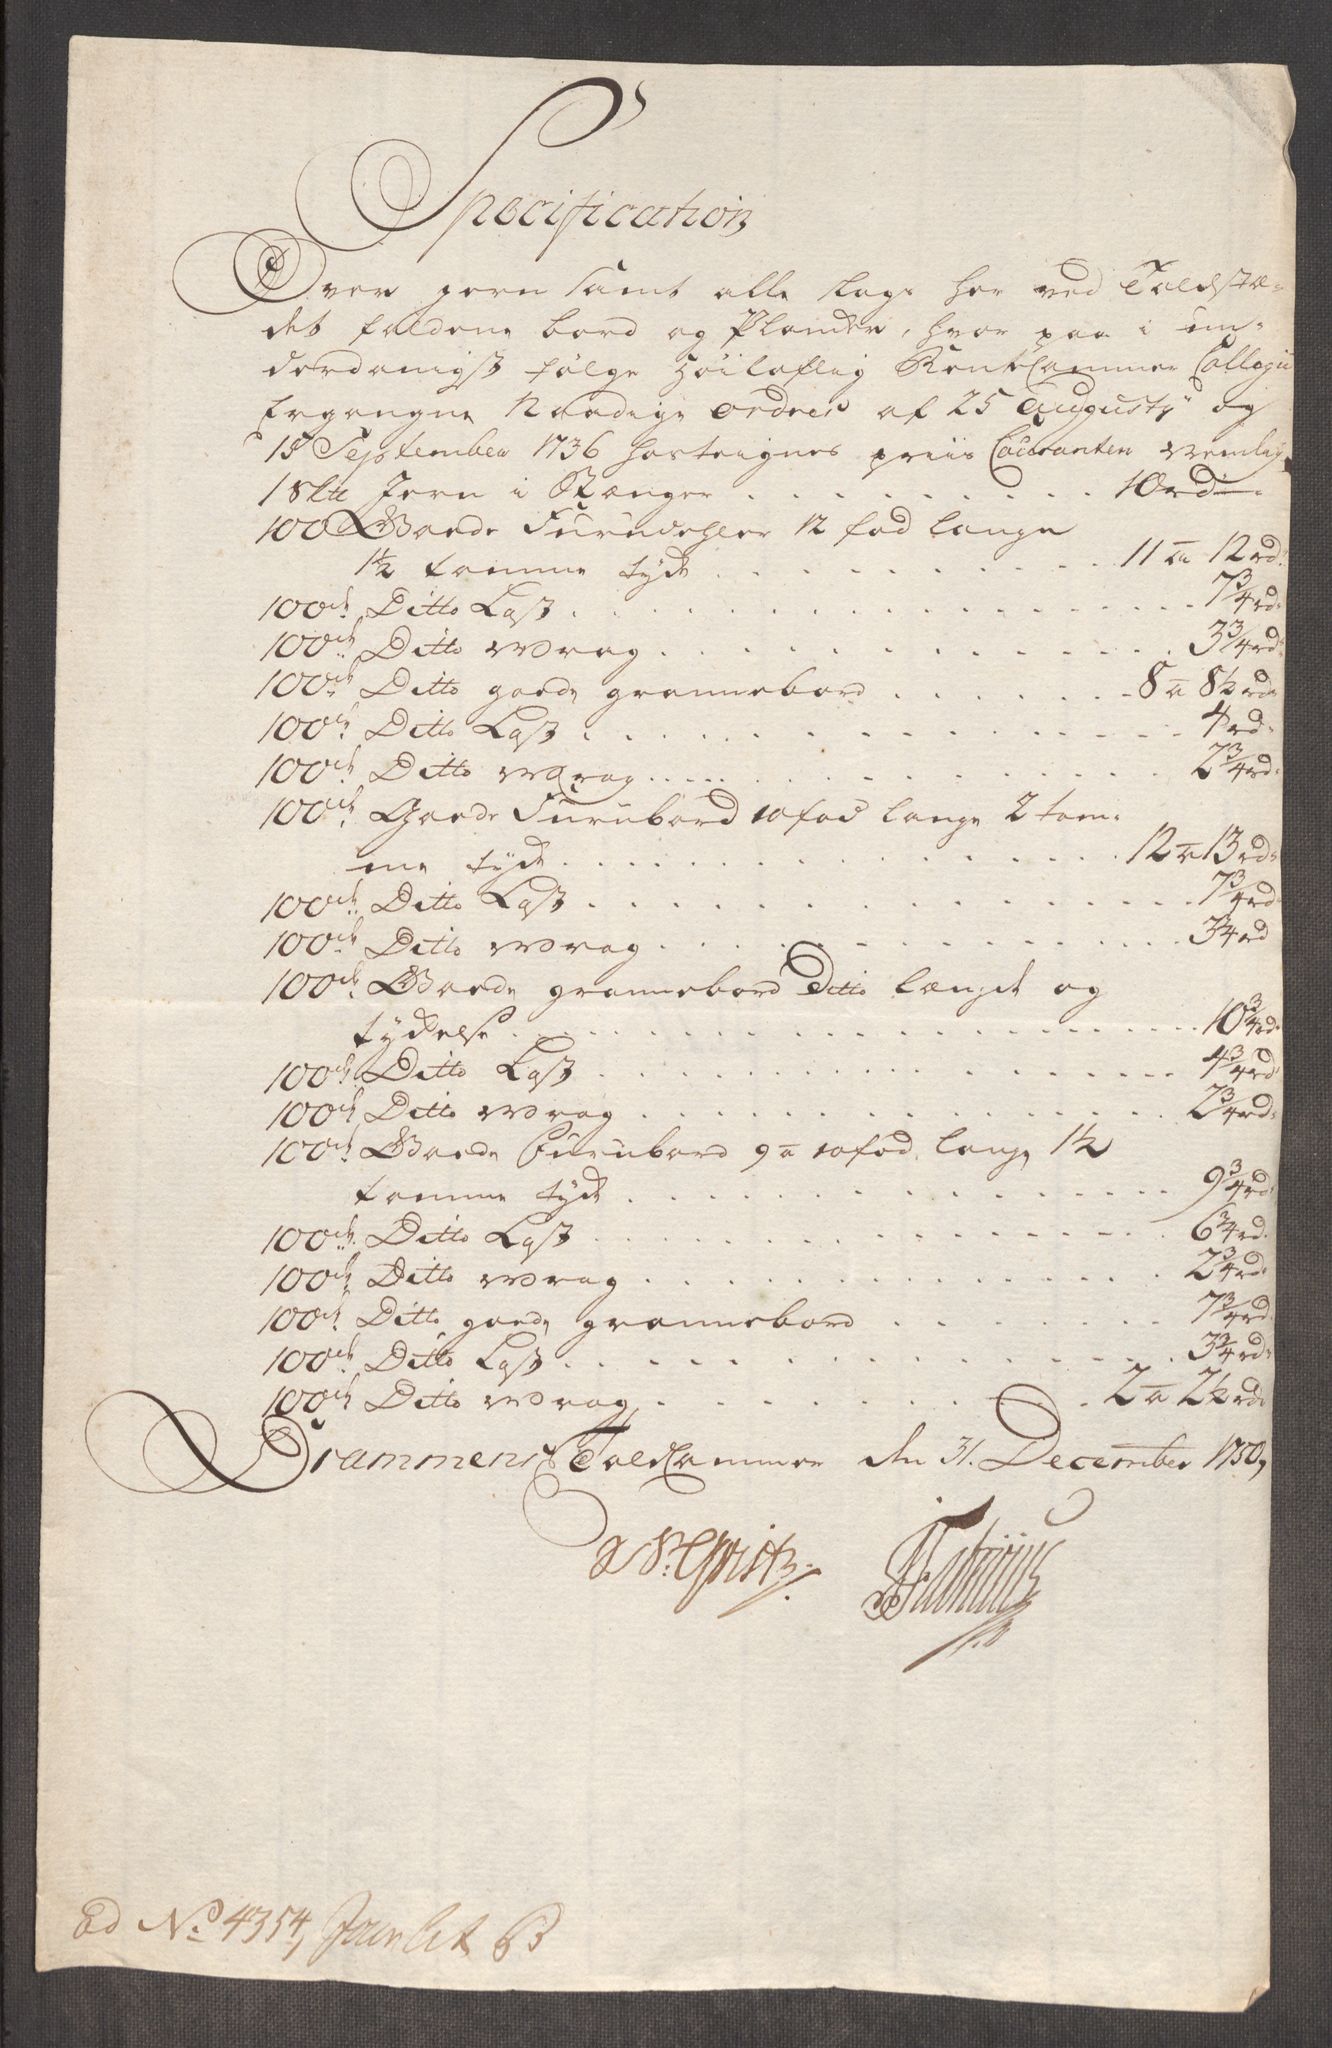 Specification
Over Jern samt alle slags her ved Toldstæ-
det faldene bord og Plancker, hvor paa i un-
derdanigst følge Høiloflig RentCammer Collegii
Ergangne Naadige Ordres af 25 Augusty og
15 September 1736 hosteignes priis Couranten Nemlig
1 Skt Jern i Stænger . . . . . . . . . 10 rd
100 Goede Furudehler 12 fod lange
1½ tomme tyck . . . . . . . . . 11 a 12 rd
100de Ditto Last . . . . . . . . . 7¾ rd
100de Ditto Wrag . . . . . . . . . 3¾ rd
100de Ditto goede grannebord . . . . . . 8 a 8½ rd
100de Ditto Last . . . . . . . . . 4 rd
100de Ditto Wrag . . . . . . . . . 2¾ rd
100de Goede Furubord 10 fod lange 2 tom-
me tyck . . . . . . . . . 12 a 13 rd
100de Ditto Last . . . . . . . . . 7¾ rd
100de Ditto Wrag . . . . . . . . . 3¾ rd
100de Goede grannebord Ditto længde og
tyckelse . . . . . . . . . 10¾ rd
100de Ditto Last . . . . . . . . . 4¾ rd
100de Ditto Wrag . . . . . . . . . 2¾ rd
100de Goede Furubord 9 a 10 fod lange 1½
tomme tyck . . . . . . . . . 9¾ rd
100de Ditto Last . . . . . . . . . 6¾ rd
100de Ditto Wrag . . . . . . . . . 2¾ rd
100de Ditto goede grannebord . . . . . . 7¾ rd
100de Ditto Last . . . . . . . . . 3¾ rd
100de Ditto Wrag . . . . . . . . . 2 a 2½ rd
Drammens ToldCammer den 31. December 1750,
Ad No 4354,